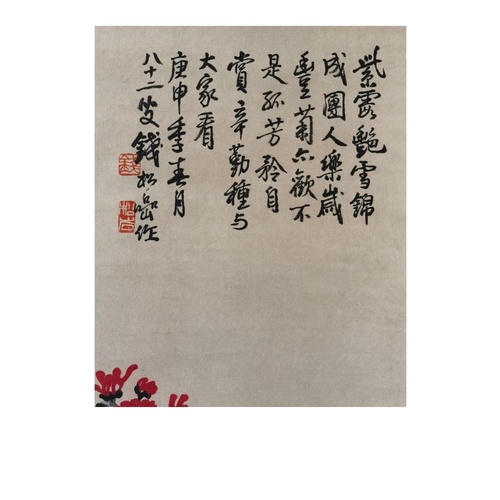 紫霞艷雪錦
成團人樂歲
豊菊亦歡不
是孤芳矜自
賞辛勤種与
大家看
庚申季春月
八十二叟錢松嵒作